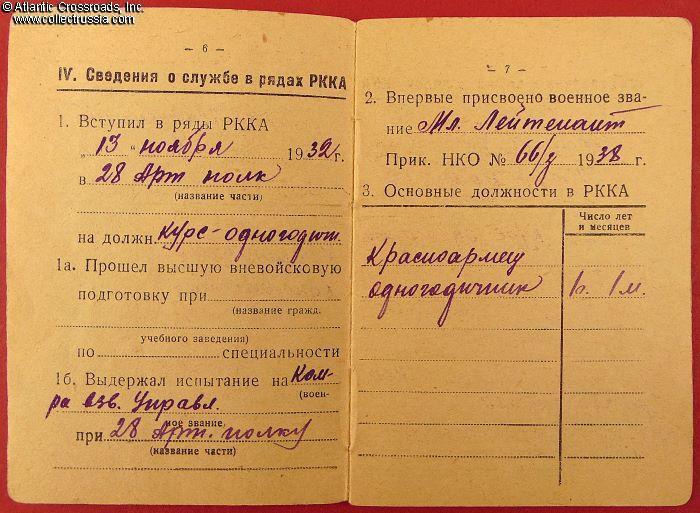 © Atlantic Crossroads, Inc.
www.collectrussia.com
— 6 —
IV. Сведения о службе в рядах РККА
1. Вступил в ряды РККА
„13“ ноября 1932 г.
в 28 Арт полк
(название части)
на должн. курс-одногодичн.
1а. Прошел высшую вневойсковую
подготовку при
(название гражд.
учебного заведения)
по специальности
1б. Выдержал испытание на Ком-
(воен-
ра взв. Управл.
ное звание)
при 28 Арт. полку
(название части)
— 7 —
2. Впервые присвоено военное зва-
ние Мл. Лейтенант
Прик. НКО № 66/у 1938 г.
3. Основные должности в РККА
Число лет
и месяцев
Красноармеец
одногодичник 1г. 1м.